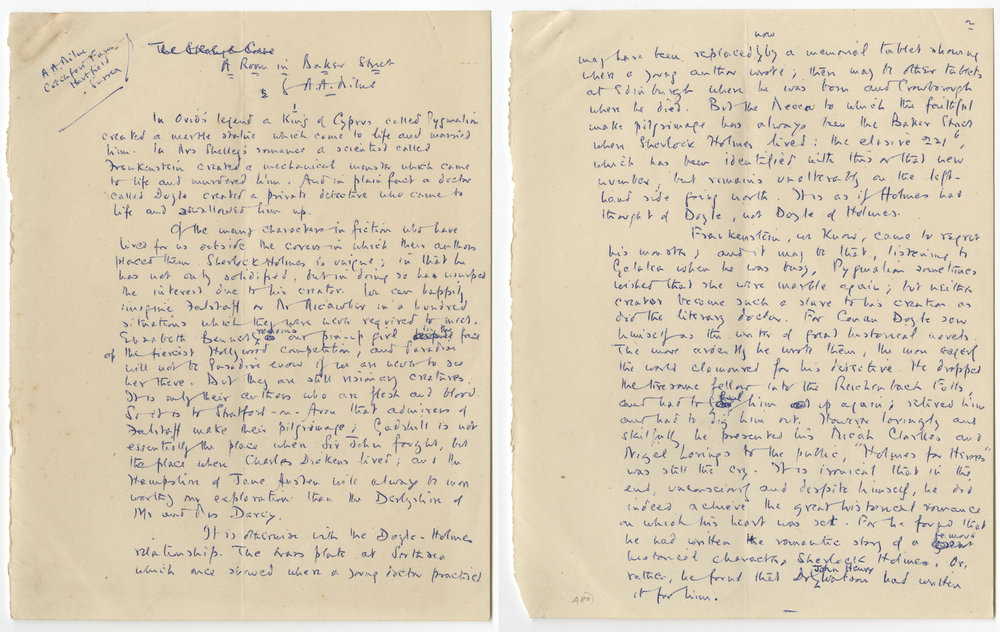 A. A. Milne
Cotchford Farm,
Hartfield
Sussex
The
A Room in Baker Street
by A. A. Milne
In Ovid's legend a King of Cyprus called Pygmalion
created a marble statue which came to life and married
him. In Mrs Shelley's romance a scientist called
Frankenstein created a mechanical monster which came
to life and murdered him. And in plain fact a doctor
called Doyle created a private detective who came to
life and swallowed him up.
Of the many characters in fiction who have
lived for us outside the covers in which their authors
placed them Sherlock Holmes is unique; in that he
has not only solidified, but in doing so has usurped
the interest due to his creator. We can happily
imagine Falstaff or Mr Micawber in a hundred
situations which they were never required to meet.
Elizabeth Bennet remains our pin-up girl in the face
of the fiercest Hollywood competition, and Paradise
will not be Paradise even if we are never to see
her there. But they are still visionary creatures.
It is only their authors who are flesh and blood.
So it is to Stratford-on-Avon that admirers of
Falstaff make their pilgrimage; Gadshill is not
essentially the place where Sir John fought, but
the place where Charles Dickens lived; and the
Hampshire of Jane Austen will always be more
worthy our exploration than the Derbyshire of
Mr and Mrs Darcy.
It is otherwise with the Doyle-Holmes
relationship. The brass plate at Southsea
which once showed where a young doctor practised
2
now
may have been replaced by a memorial tablet showing
where a young author wrote; there may be other tablets
at Edinburgh where he was born and Crowborough
where he died. But the Mecca to which the faithful
make pilgrimage has always been the Baker Street
where Sherlock Holmes lived: the elusive 221b,
which has been identified with this or that new
number, but remains unalterably on the left-
hand side going north. It is as if Holmes had
thought of Doyle, not Doyle of Holmes.
Frankenstein, we know, came to regret
his monster; and it may be that, listening to
Galatea when he was busy, Pygmalion sometimes
wished that she were marble again; but neither
creator became such a slave to his creation as
did the literary doctor. For Conan Doyle saw
himself as the writer of great historical novels.
The more ardently he wrote them, the more eagerly
the world clamoured for his detective. He dropped
the tiresome fellow into the Reichenbach Falls
and had to haul him up again; retired him
and had to dig him out. However lovingly and
skilfully he presented his Micah Clarkes and
Nigel Lorings to the public, "Holmes for Heroes"
was still the cry. It is ironical that in the
end, unconsciously and despite himself, he did
indeed achieve the great historical romance
on which his heart was set. For he found that
he had written the romantic story of a famous
historical character, Sherlock Holmes. Or,
rather, he found that Dr John Henry Watson had written
it for him.